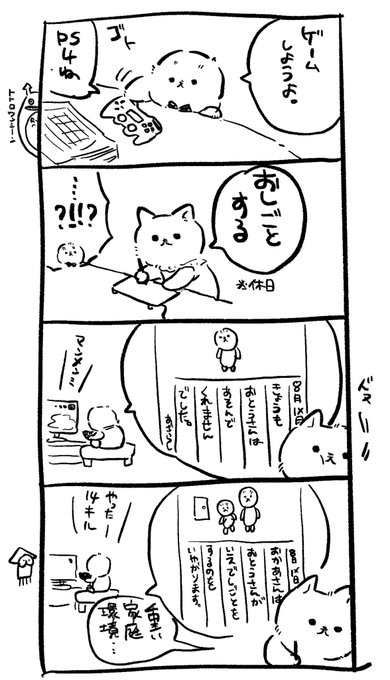 ゲーム
しようよ。
ゴト
PS
4ね
おしごと
する
※休日
…
?!!?
8月1×日
きょうも
おとうさんは
あそんで
くれません
でした。
マンメンミ
8月1×日
おかあさんは
おとうさんが
いえでしごとを
するのを
いやがります。
やったー
14キル
重い
家庭
環境…